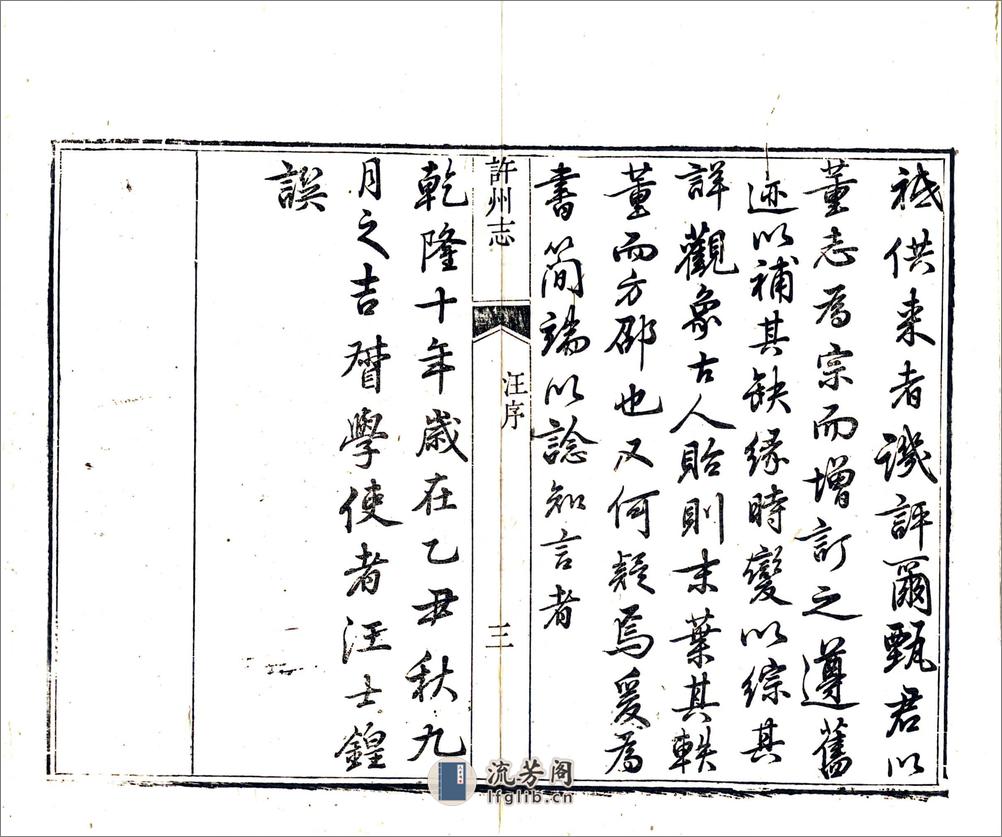 祗供来者譏評爾甄君以
董志為宗而增訂之遵舊
迹以補其缺緣時變以綜其
詳觀象古人貽則末葉其軼
董而方邵也又何疑焉爰為
書簡端以諗知言者
許州志
汪序
三
乾隆十年歲在乙丑秋九
月之吉督學使者汪士鍠
譔
流芳阁
lfglib.cn